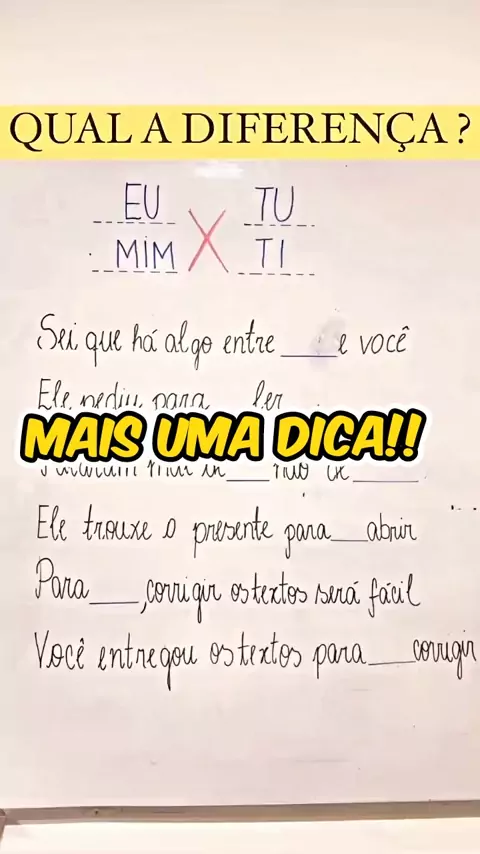 QUAL A DIFERENÇA ?
EU TU
MIM X TI
Sei que há algo entre ____ e você
Ele pediu para ___ ler
MAIS UMA DICA!!
____ não de ____
Ele trouxe o presente para ___ abrir
Para ____, corrigir os textos será fácil
Você entregou os textos para ____ corrigir